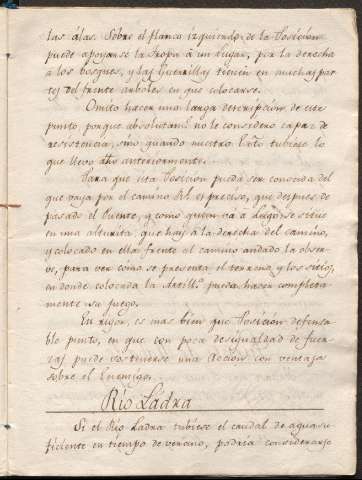 las álas. Sobre el flanco izquierdo de la Posicion
puede apoyarse la tropa á un Lugar, por la derecha
á los bosques, y las Guerrillas tienen en muchas par
tes del frente arboles en que colocarse.
Omito hacer una larga descripcion de este
punto, porque absolutamte no le considero capaz de
resistencia, sino quando nuestro Exto tubiese lo
que llevo dho anteriormente.
Para que esta Posicion pueda ser conocida del
que vaya por el camino Rl. es preciso, que despues de
pasado el Puente, y como quien va á Lugo, se situe
en una alturita, que hay á la derecha del camino,
y colocado en ella frente al camino andado la obser-
ve, para ver como se presenta el terreno, y los sitios,
en donde colocada la Artillra pueda hacer completa
mente su juego.
En rigor, es mas bien que Posicion defensa
ble punto, en que con poca desigualdad de fuer-
zas puede sostenerse una Accion con ventaja
sobre el Enemigo.
Río Ládra
Si el Río Ladra tubiese el caudal de agua su
ficiente en tiempo de verano, podria considerarse